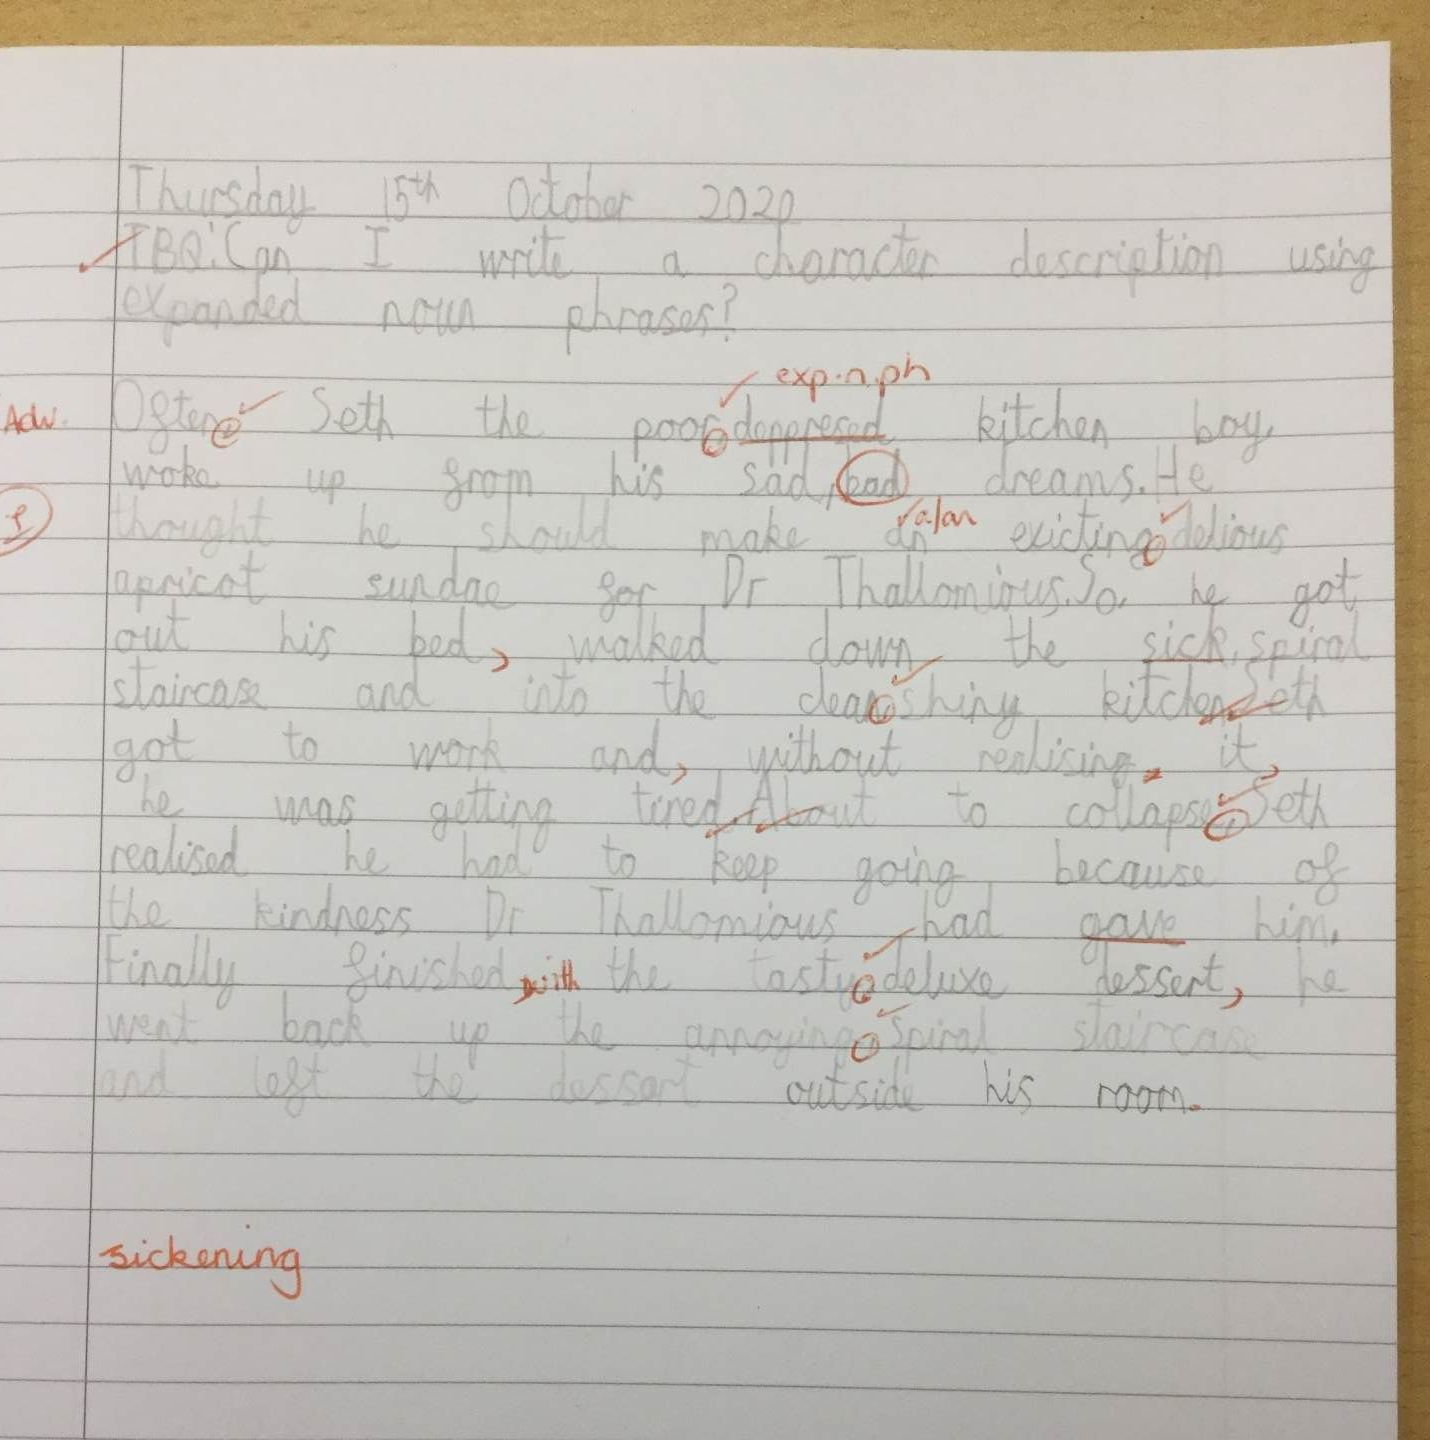 Thursday 15th October 2020
TBQ: Can I write a character description using
expanded noun phrases?
exp.n.ph
Adv. Often, Seth the poor, deppresed kitchen boy,
woke up from his sad, bad dreams. He
a/an
thought he should make an exicting, delious
apricot sundae for Dr Thallomious. So, he got
out his bed, walked down the sick, spiral
staircase and into the clean, shiny kitchen. Seth
got to work and, without realising it,
he was getting tired. About to collapse, Seth
realised he had to keep going because of
the kindness Dr Thallomious had gave him.
Finally finished with the tasty, deluxe dessert, he
went back up the annoying, spiral staircase
and left the dessert outside his room.
sickening